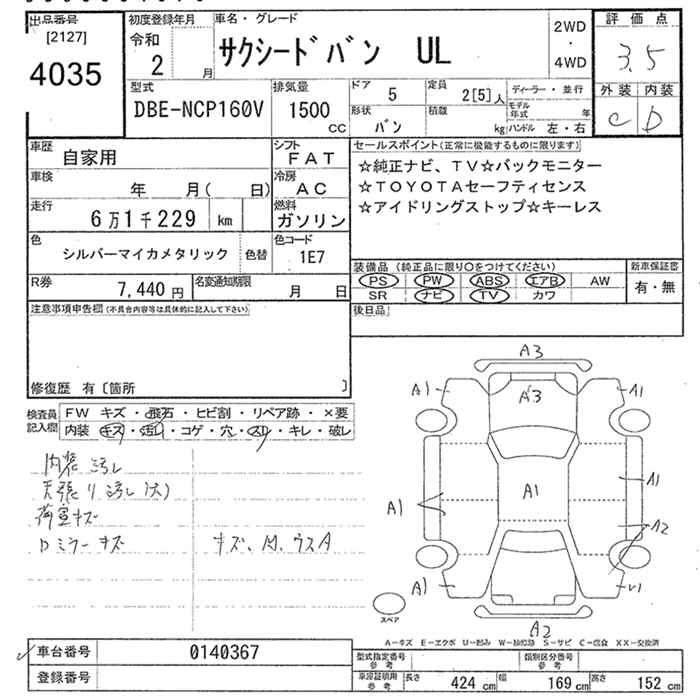 出品番号 初度登録年月 車名・グレード 評価点
[2127] 令和 サクシードバン UL 2WD
・
4035 2 月 4WD 3.5
型式 排気量 ドア 5 定員 2[5]人 ディーラー・並行 外装 内装
DBE-NCP160V 1500 cc 形状 バン 積載 kg モデル年式 年 ハンドル 左・右 C D
車歴 自家用 シフト FAT セールスポイント(正常に機能するものに限ります)
車検 年 月( 日) 冷房 AC ☆純正ナビ、TV☆バックモニター
走行 6万1千229 km 燃料 ガソリン ☆TOYOTAセーフティセンス
☆アイドリングストップ☆キーレス
色 シルバーマイカメタリック 色替 色コード 1E7
装備品(純正品に限り〇をつけてください) 新車保証書
R券 7,440円 名変通知期限 月 日 PS PW ABS エアB AW 有・無
SR ナビ TV カワ
注意事項申告欄(不具合内容等は具体的に記入して下さい) 後日品
修復歴 有〔箇所 〕
検査員記入欄 FW キズ・飛石・ヒビ割・リペア跡・×要
内装 キズ・汚レ・コゲ・穴・スリ・キレ・破レ
内装汚レ
天張り汚レ(大)
荷室キズ
Dミラーキズ キズ、A、ウスA
A3
A1 A3 A1
A1 A1 A1
A2
A1 U1
スペア A2
A-キズ E-エクボ U-凹み W-補修跡 S-サビ C-腐食 XX-交換済
車台番号 0140367 型式指定番号 参考 類別区分番号 参考
登録番号 車庫証明用 参考 長さ 424cm 幅 169cm 高さ 152cm